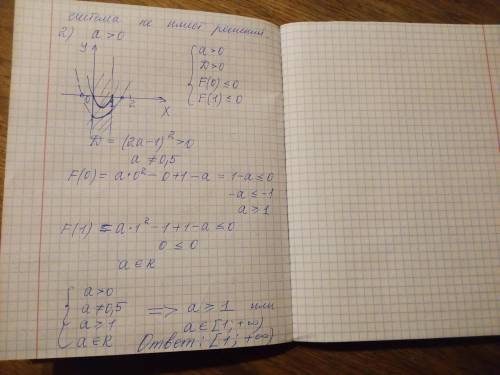 система не имеет решения
2) a > 0
y
0
1
2
x
{ a > 0
D > 0
F(0) ≤ 0
F(1) ≤ 0
D = (2a-1)² > 0
a ≠ 0,5
F(0) = a·0² - 0 + 1 - a = 1 - a ≤ 0
-a ≤ -1
a ≥ 1
F(1) = a·1² - 1 + 1 - a ≤ 0
0 ≤ 0
a ∈ R
{ a > 0
a ≠ 0,5
a ≥ 1
a ∈ R
=> a ≥ 1 или
a ∈ [1; +∞)
Ответ: [1; +∞)